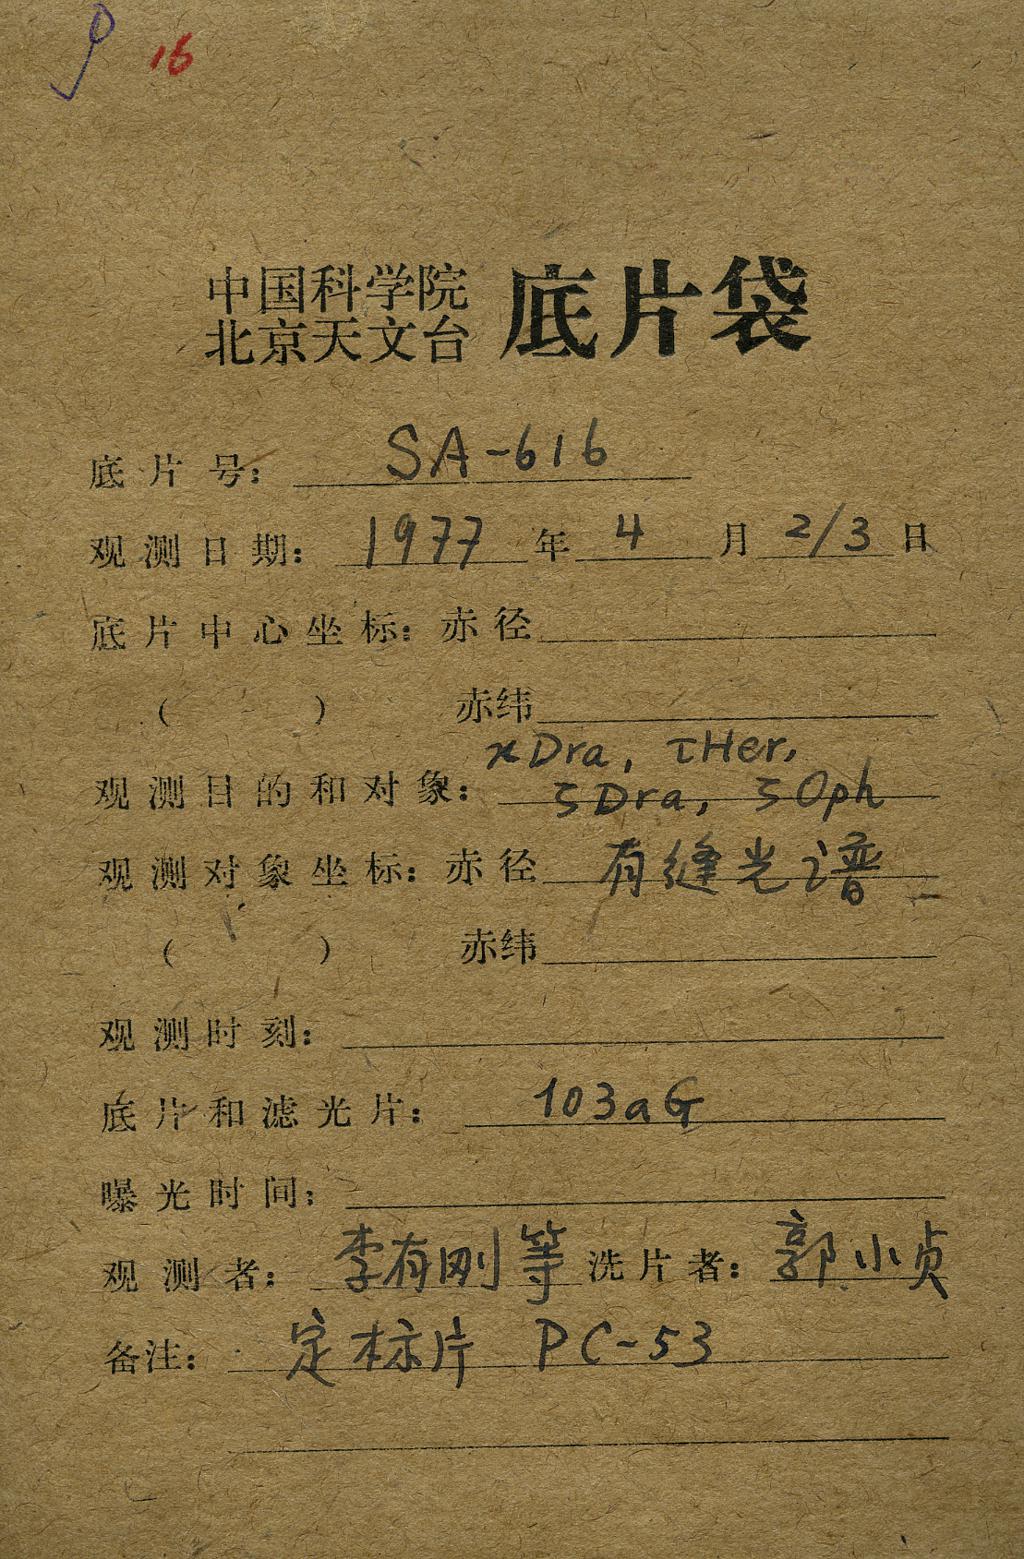 16
中国科学院
北京天文台 底片袋
底片号: SA-616
观测日期: 1977 年 4 月 2/3 日
底片中心坐标: 赤径
( ) 赤纬
κ Dra, τ Her,
观测目的和对象: ζ Dra, ζ Oph
观测对象坐标: 赤径 有缝光谱
( ) 赤纬
观测时刻:
底片和滤光片: 103aG
曝光时间:
观测者: 李有刚等 洗片者: 郭小贞
备注: 定标片 PC-53